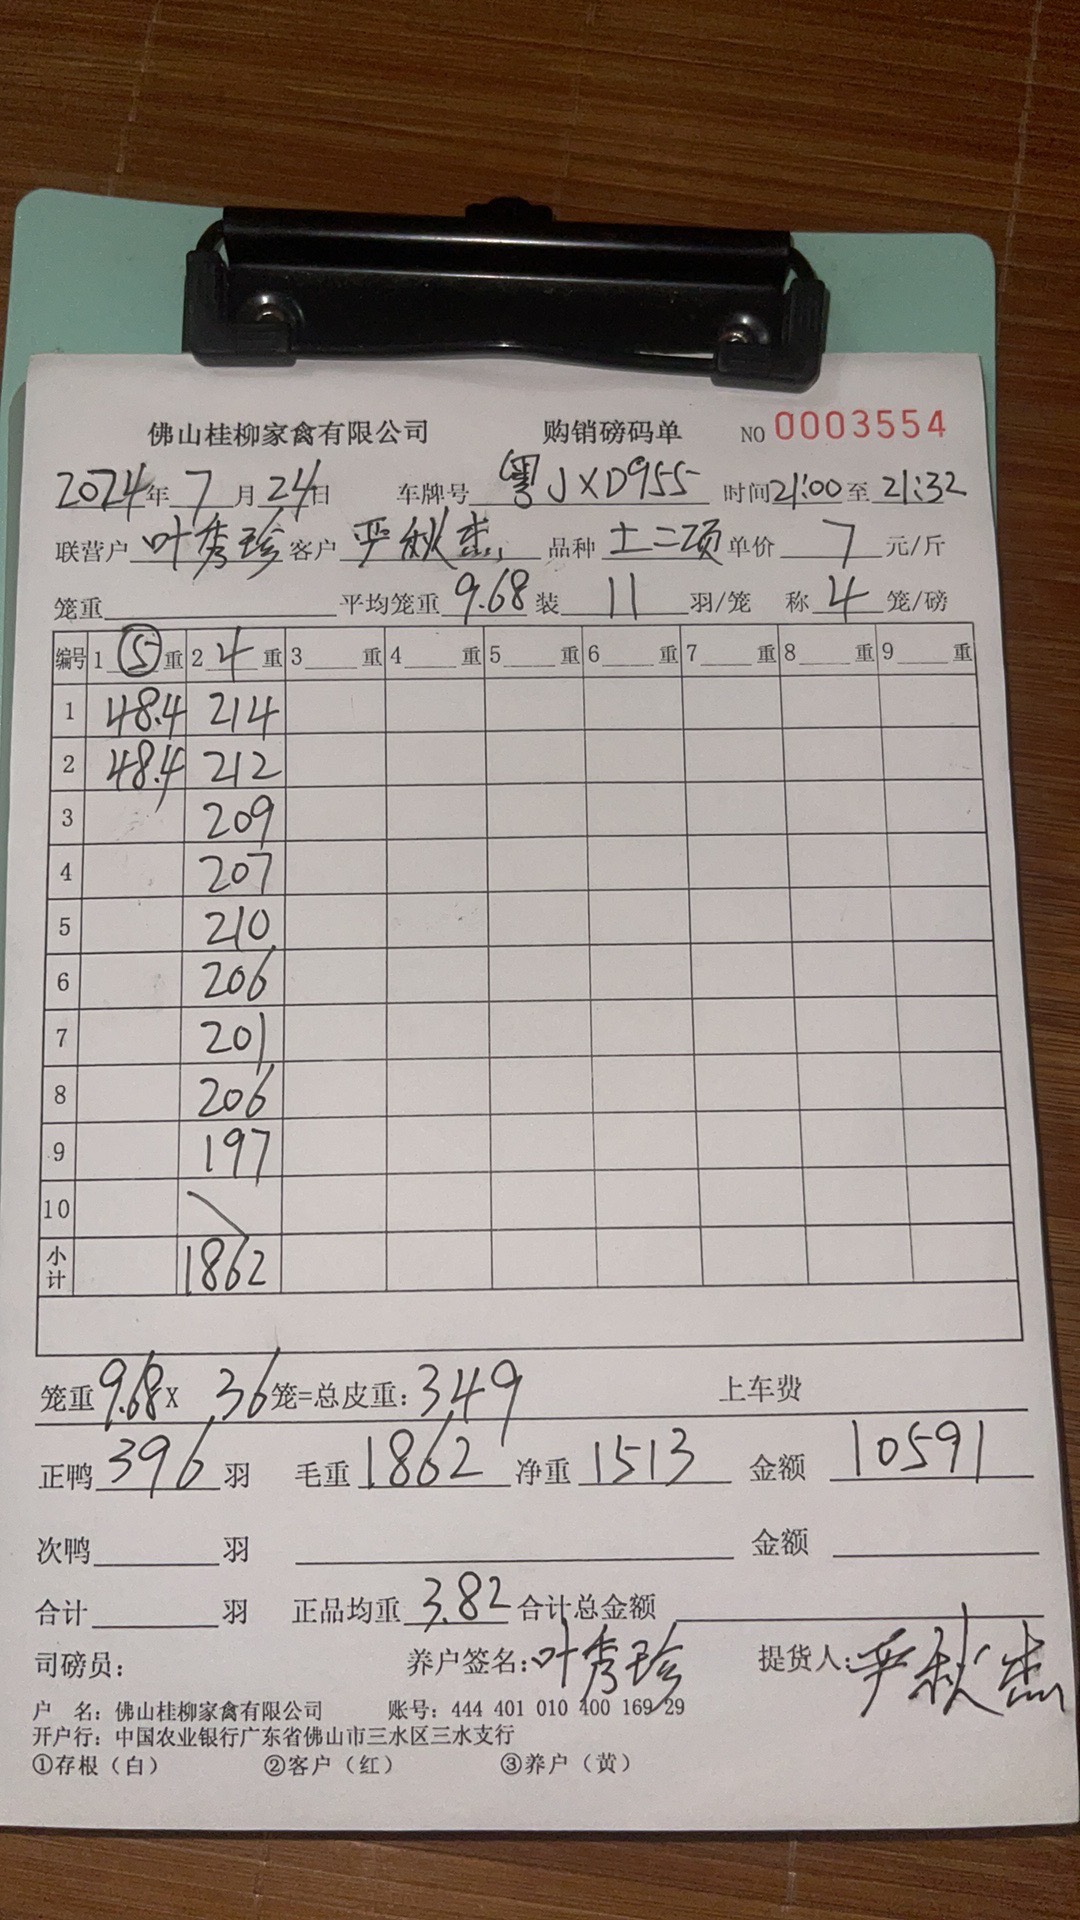 佛山桂柳家禽有限公司 购销磅码单 NO 0003554
2024年7月24日 车牌号 粤JXD955 时间21:00至21:32
联营户 叶秀珍 客户 严秋杰 品种 土二项 单价 7 元/斤
笼重 平均笼重 9.68 装 11 羽/笼 称 4 笼/磅
编号 1 5 重 2 4 重 3 重 4 重 5 重 6 重 7 重 8 重 9 重
1 48.4 214
2 48.4 212
3 209
4 207
5 210
6 206
7 201
8 206
9 197
10
小计 1862
笼重 9.68 X 36 笼=总皮重: 349 上车费
正鸭 396 羽 毛重 1862 净重 1513 金额 10591
次鸭 羽 金额
合计 羽 正品均重 3.82 合计总金额
司磅员: 养户签名: 叶秀珍 提货人: 严秋杰
户 名: 佛山桂柳家禽有限公司 账号: 444 401 010 400 169 29
开户行: 中国农业银行广东省佛山市三水区三水支行
①存根（白） ②客户（红） ③养户（黄）